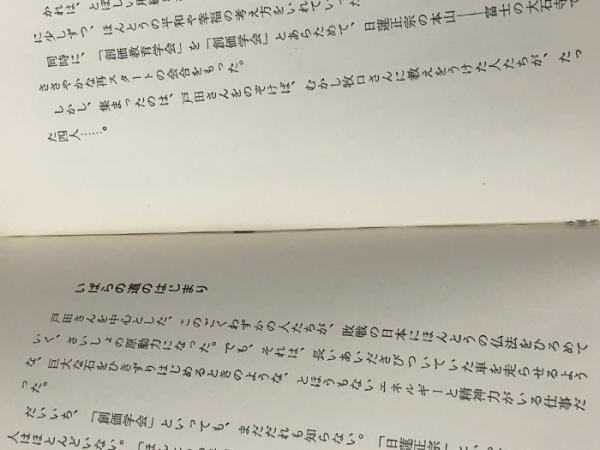 かれは、とぼしい用
に少しずつ、ほんとうの平和や幸福の考え方をいれていった
同時に、「創価教育学会」を「創価学会」とあらためて、日蓮正宗の本山――富士の大石寺で
ささやかな再スタートの会合をもった。
しかし、集まったのは、戸田さんをのぞけば、むかし牧口さんに教えをうけた人たちが、たっ
た四人……。
いばらの道のはじまり
戸田さんを中心とした、このごくわずかの人たちが、敗戦の日本にほんとうの仏法をひろめて
いく、さいしょの原動力になった。でも、それは、長いあいださびついていた車を走らせるよう
な、巨大な石をひきずりはじめるときのような、とほうもないエネルギーと精神力がいる仕事だ
った。
だいいち、「創価学会」といっても、まだだれも知らない。「日蓮正宗」に
人はほとんどいない。「ほん